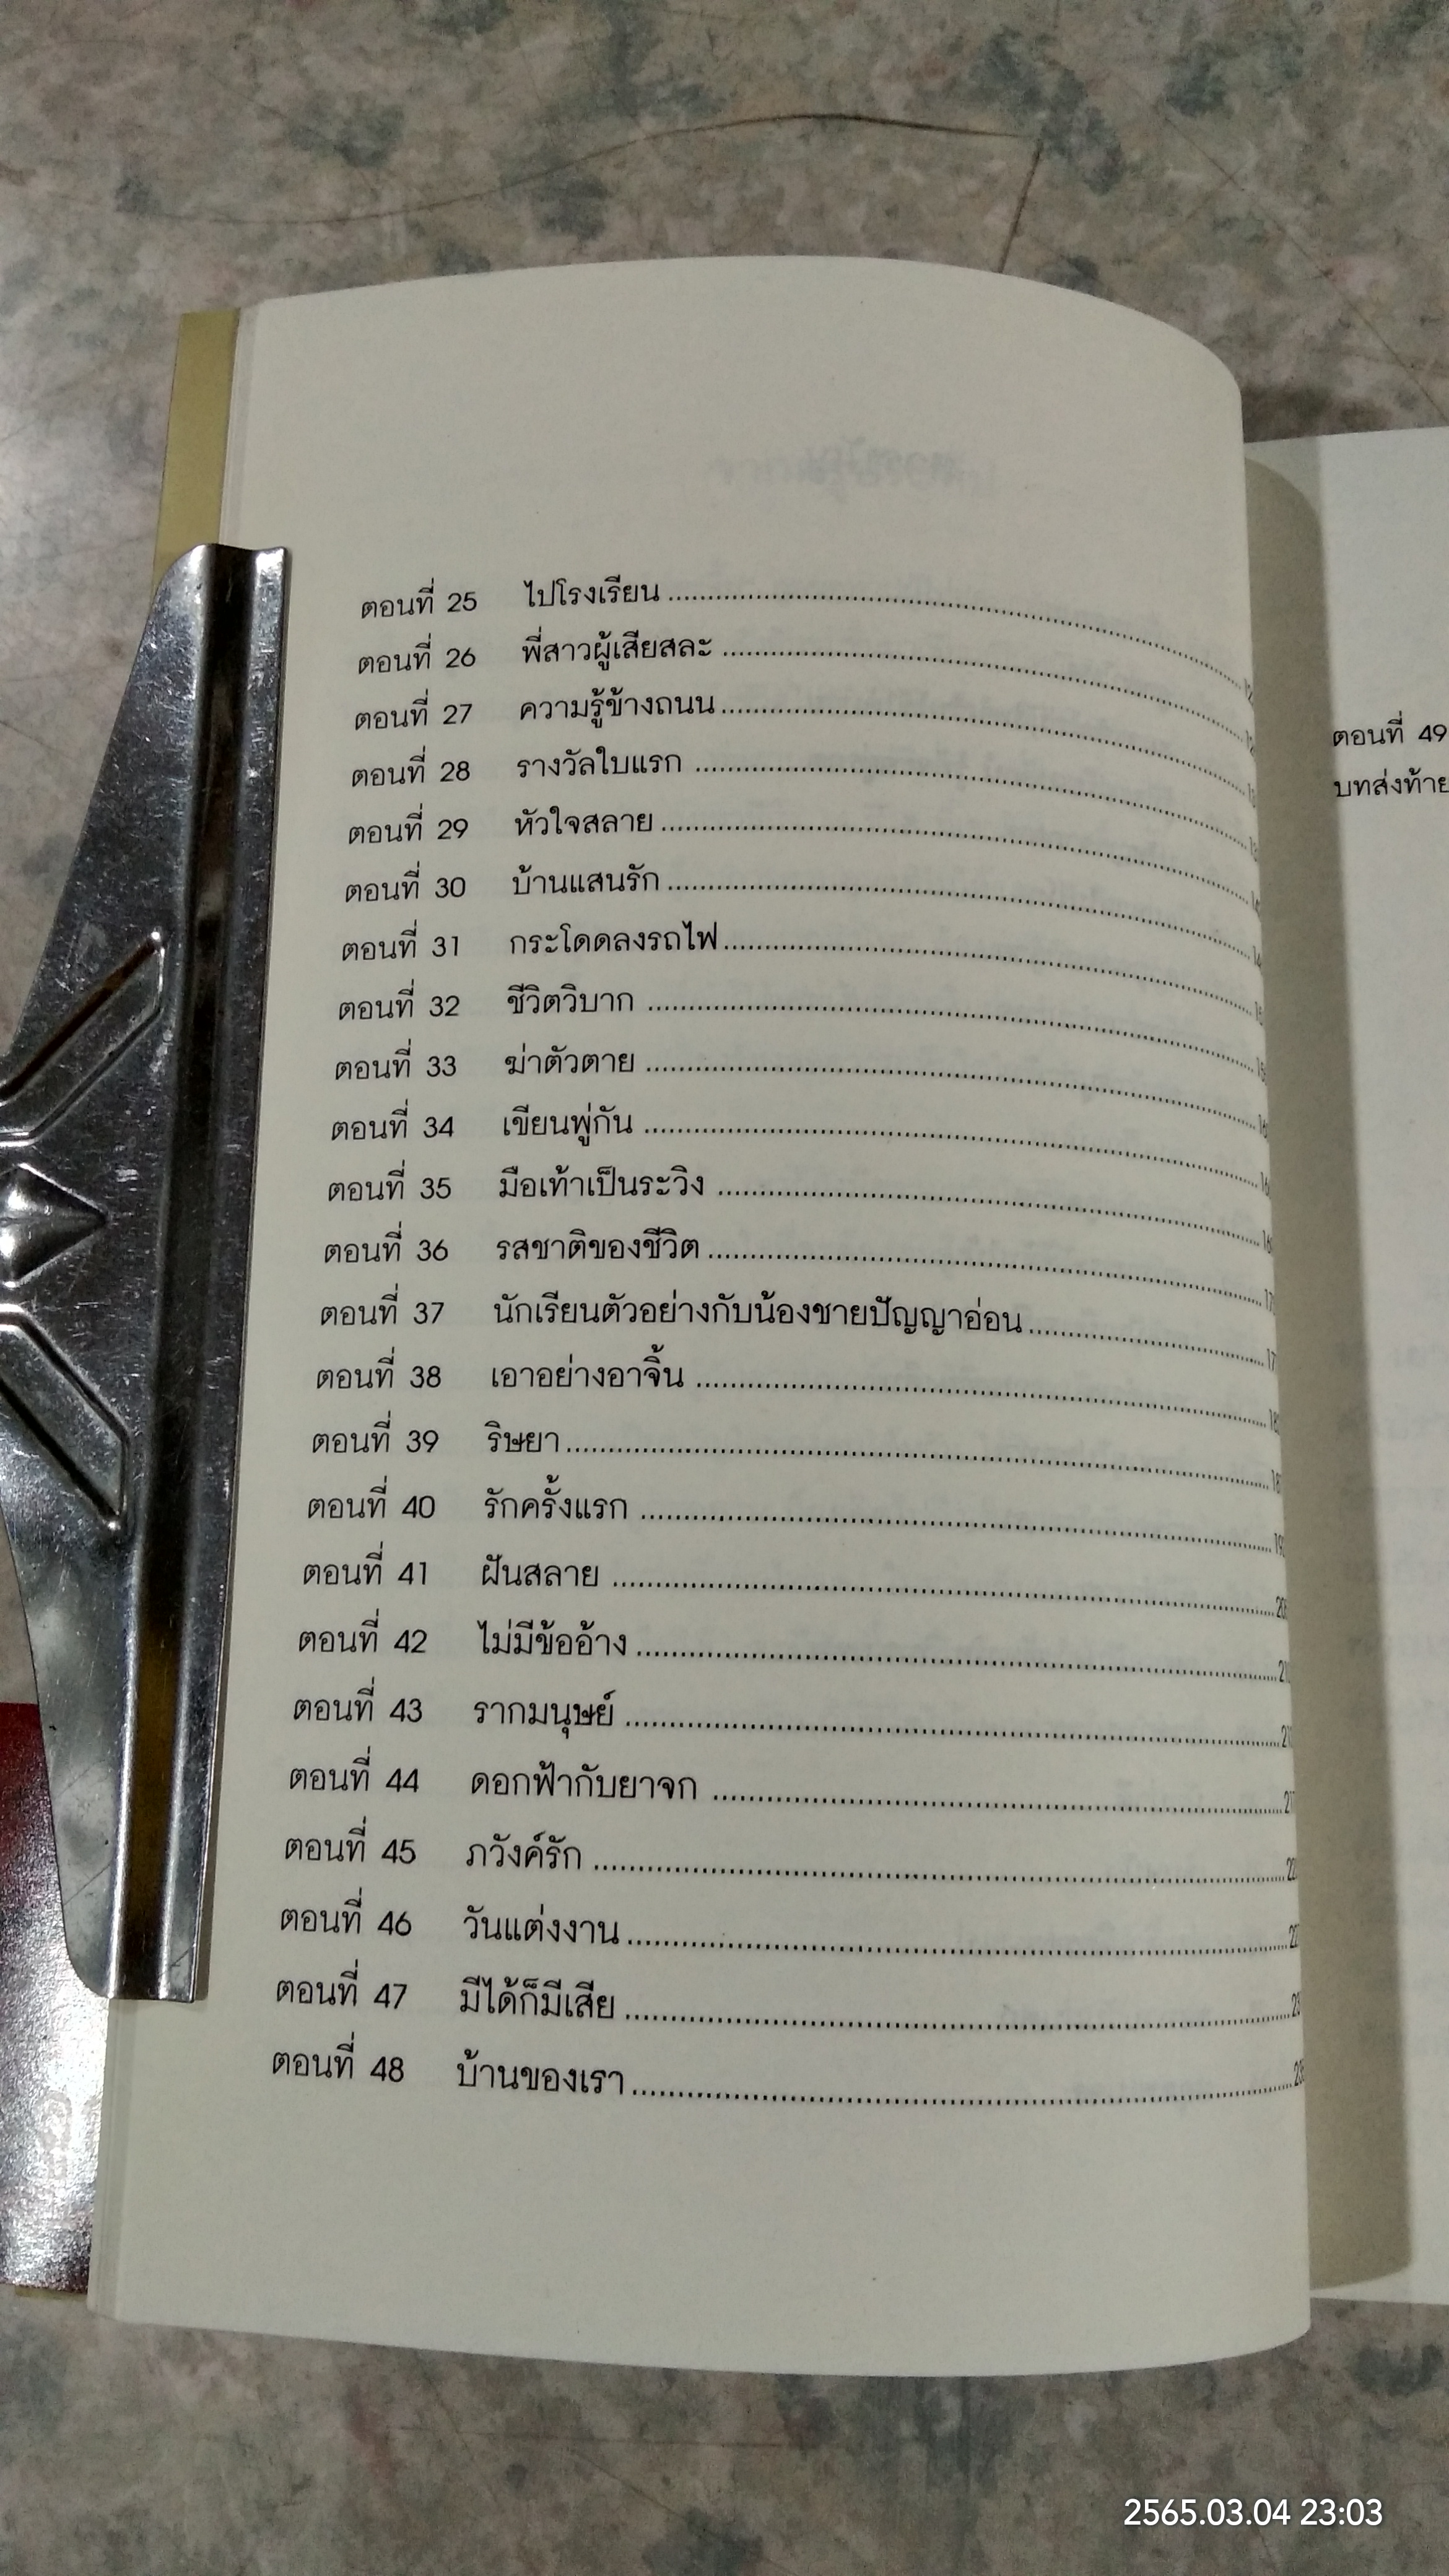 ตอนที่ 25 ไปโรงเรียน
ตอนที่ 26 พี่สาวผู้เสียสละ
ตอนที่ 27 ความรู้ข้างถนน
ตอนที่ 28 รางวัลใบแรก
ตอนที่ 29 หัวใจสลาย
ตอนที่ 30 บ้านแสนรัก
ตอนที่ 31 กระโดดลงรถไฟ
ตอนที่ 32 ชีวิตวิบาก
ตอนที่ 33 ฆ่าตัวตาย
ตอนที่ 34 เขียนพู่กัน
ตอนที่ 35 มือเท้าเป็นระวิง
ตอนที่ 36 รสชาติของชีวิต
ตอนที่ 37 นักเรียนตัวอย่างกับน้องชายปัญญาอ่อน
ตอนที่ 38 เอาอย่างอาจิ้น
ตอนที่ 39 ริษยา
ตอนที่ 40 รักครั้งแรก
ตอนที่ 41 ฝันสลาย
ตอนที่ 42 ไม่มีข้ออ้าง
ตอนที่ 43 รากมนุษย์
ตอนที่ 44 ดอกฟ้ากับยาจก
ตอนที่ 45 ภวังค์รัก
ตอนที่ 46 วันแต่งงาน
ตอนที่ 47 มีได้ก็มีเสีย
ตอนที่ 48 บ้านของเรา
ตอนที่ 49
บทส่งท้าย
2565.03.04 23:03